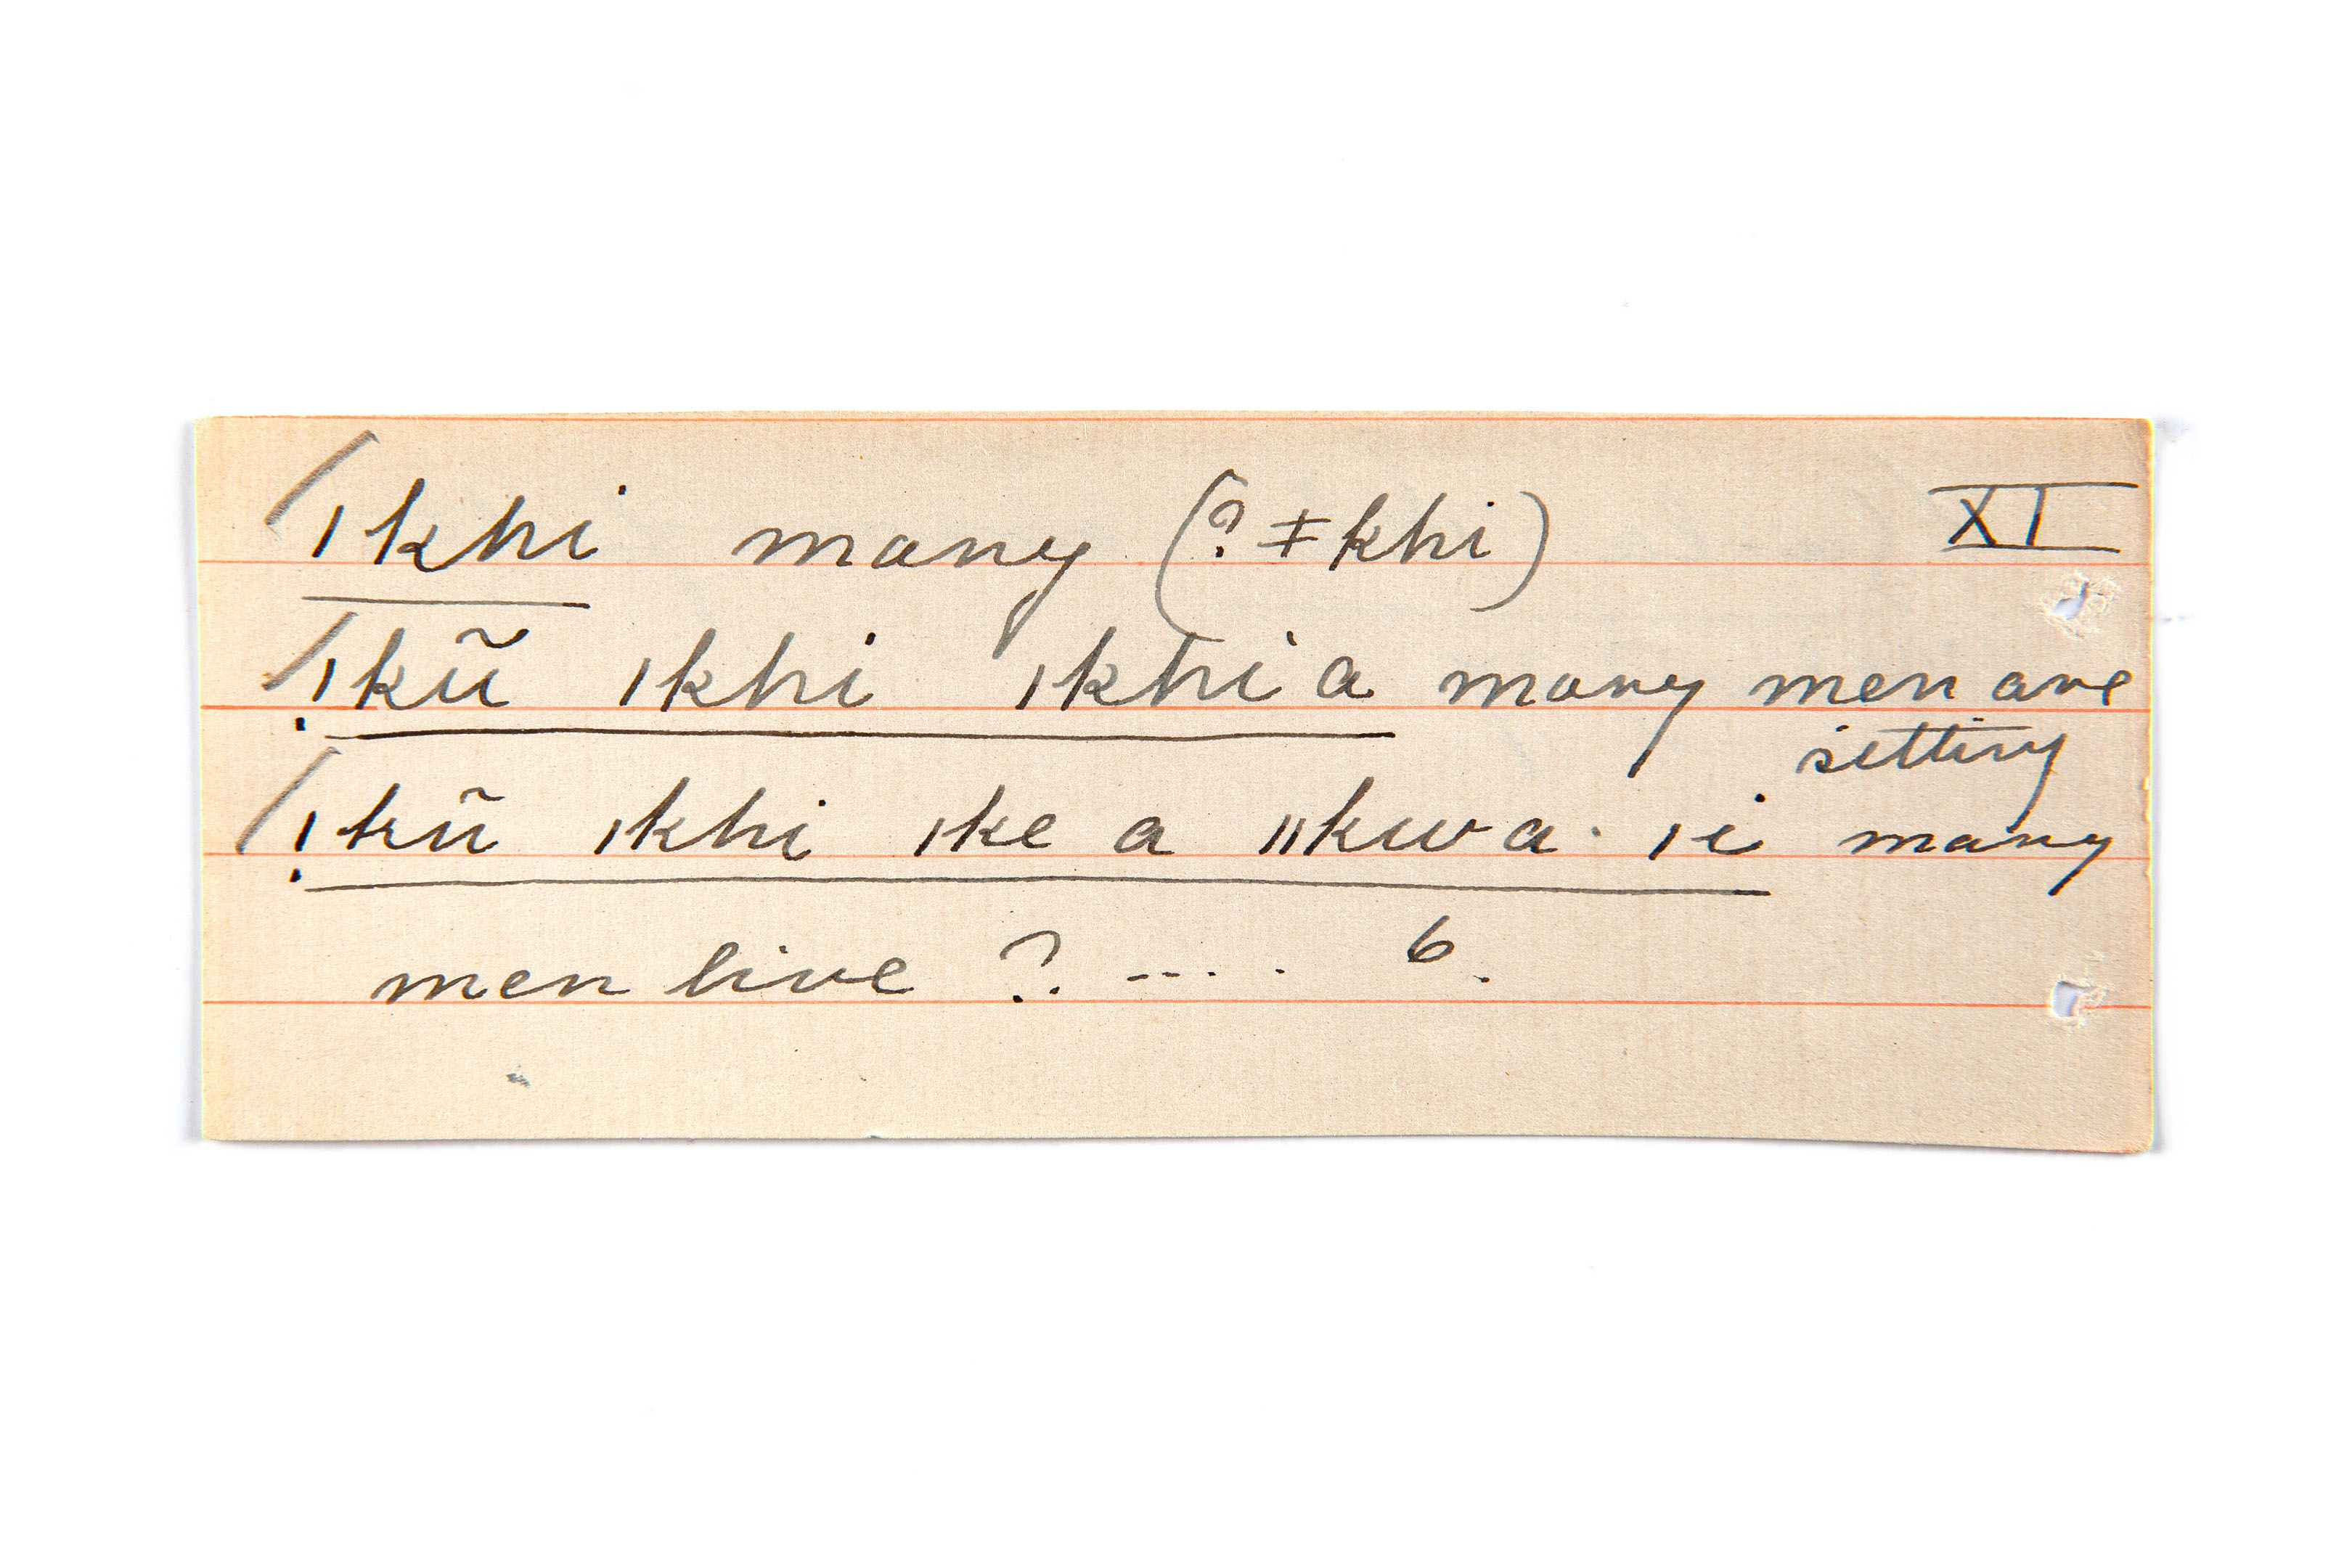 ǀkhi many (? ǂkhi) XI
ǃkũ ǀkhi ǀkhi a many men are
sitting
ǃkũ ǀkhi ǀke a ǁkwa· ǀi many
men live ? --- · 6.